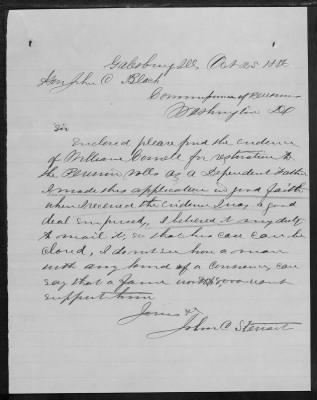 Galesburg Ill. Oct 25 188
Hon John C Black
Commissioner of Pensions
Washington DC
Sir
Enclosed please find the evidence
of William for restoration to
the Pension rolls as a Dependent Father
I made this application in good faith
when I received the evidence I was a good
deal surprised, I believed it my duty
to mail it, so that his case can be
closed, I do not see how a man
with any kind of a conscience can
say that a farm worth $8000 wont
support him
Yours &c
John C Stewart